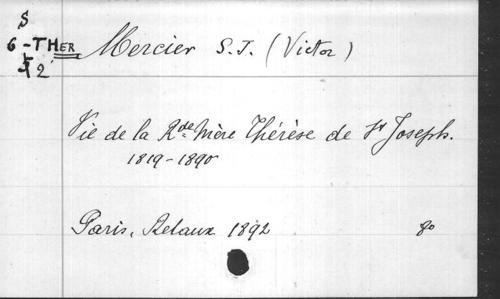 S
6-THER Mercier S.J. (Victor)
I 2
Vie de la Rde Mère Thérèse de St Joseph.
1819-1890
Paris, Retaux 1892 8o